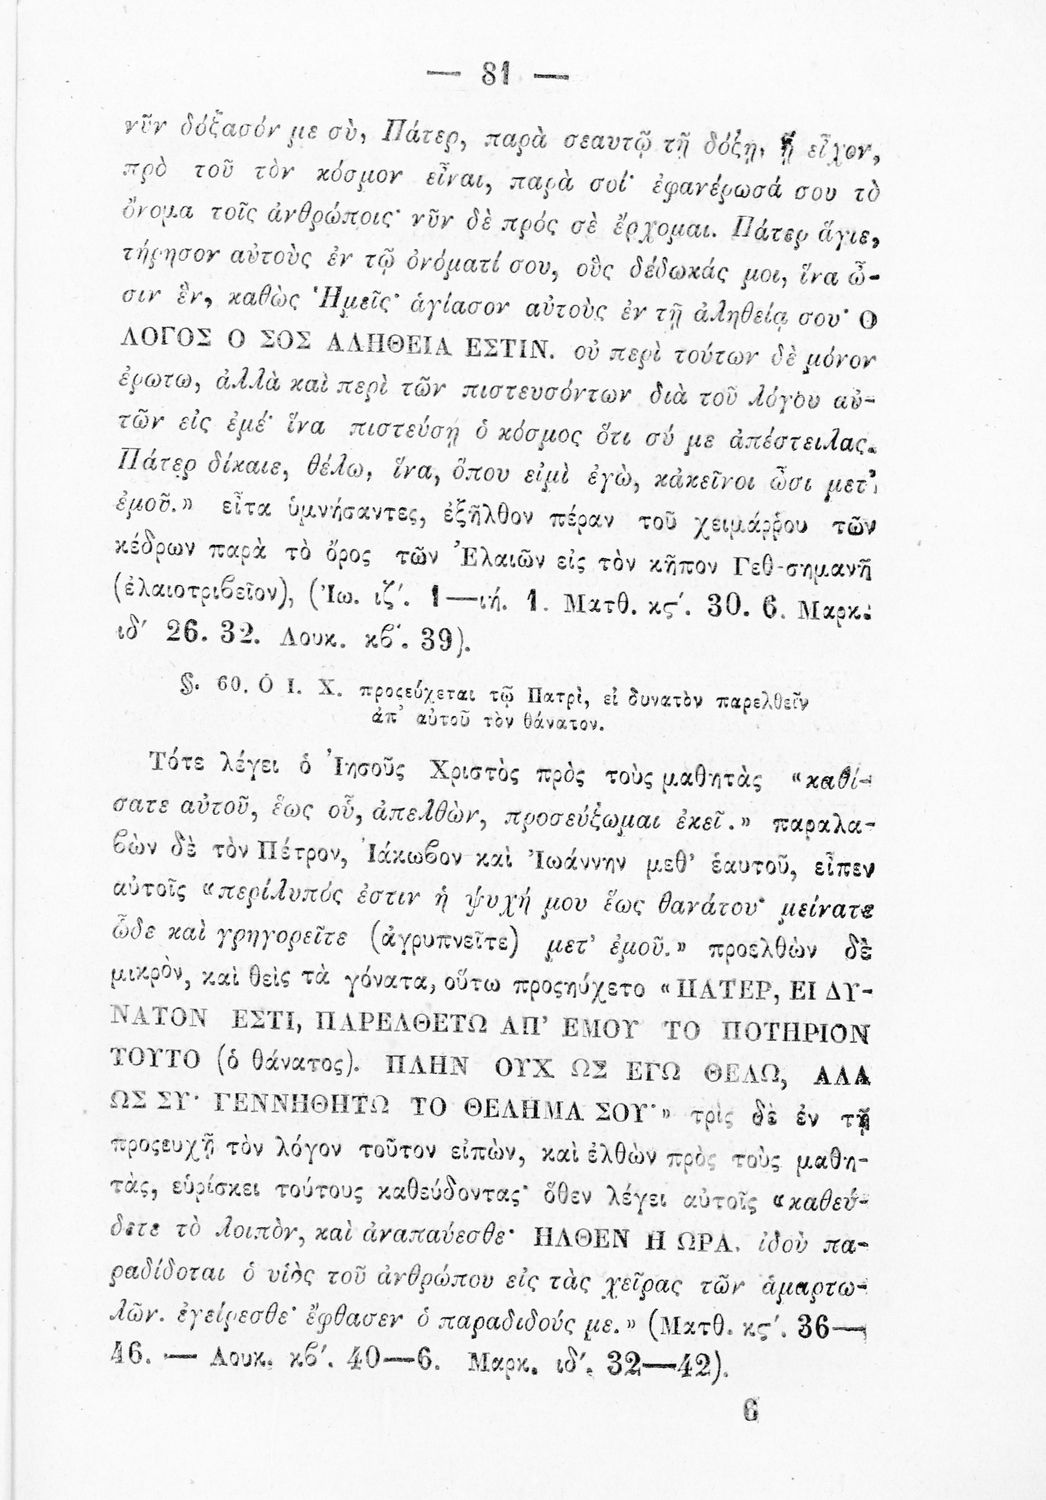 — 81 —
νῦν δόξασόν με σὺ, Πάτερ, παρὰ σεαυτῷ τῇ δόξῃ, ᾗ εἶχον,
πρὸ τοῦ τὸν κόσμον εἶναι, παρὰ σοί· ἐφανέρωσά σου τὸ
ὄνομα τοῖς ἀνθρώποις· νῦν δὲ πρός σὲ ἔρχομαι. Πάτερ ἅγιε,
τήρησον αὐτοὺς ἐν τῷ ὀνόματί σου, οὓς δέδωκάς μοι, ἵνα ὦ-
σιν ἓν, καθὼς Ἡμεῖς· ἁγίασον αὐτοὺς ἐν τῇ ἀληθείᾳ σου· Ο
ΛΟΓΟΣ Ο ΣΟΣ ΑΛΗΘΕΙΑ ΕΣΤΙΝ. οὐ περὶ τούτων δὲ μόνον
ἐρωτω, ἀλλὰ καὶ περὶ τῶν πιστευσόντων διὰ τοῦ λόγου αὐ-
τῶν εἰς ἐμέ· ἵνα πιστεύσῃ ὁ κόσμος ὅτι σύ με ἀπέστειλας.
Πάτερ δίκαιε, θέλω, ἵνα, ὅπου εἰμὶ ἐγὼ, κἀκεῖνοι ὦσι μετ'
ἐμοῦ.» εἶτα ὑμνήσαντες, ἐξῆλθον πέραν τοῦ χειμάῤῥου τῶν
κέδρων παρὰ τὸ ὄρος τῶν Ἐλαιῶν εἰς τὸν κῆπον Γεθ-σημανῆ
(ἐλαιοτριβεῖον), (Ἰω. ιζ΄. 1—ιή. 1. Ματθ. κϛ΄. 30. 6. Μαρκ.
ιδ΄ 26. 32. Λουκ. κβ΄. 39).
§. 60. Ὁ Ι. Χ. προςεύχεται τῷ Πατρὶ, εἰ δυνατὸν παρελθεῖν
ἀπ' αὐτοῦ τὸν θάνατον.
Τότε λέγει ὁ Ἰησοῦς Χριστὸς πρὸς τοὺς μαθητὰς «καθί-
σατε αὐτοῦ, ἕως οὗ, ἀπελθὼν, προσεύξωμαι ἐκεῖ.» παραλα-
βὼν δὲ τὸν Πέτρον, Ἰάκωβον καὶ Ἰωάννην μεθ' ἑαυτοῦ, εἶπεν
αὐτοῖς «περίλυπός ἐστιν ἡ ψυχή μου ἕως θανάτου· μείνατε
ὧδε καὶ γρηγορεῖτε (ἀγρυπνεῖτε) μετ' ἐμοῦ.» προελθὼν δὲ
μικρὸν, καὶ θεὶς τὰ γόνατα, οὕτω προςηύχετο «ΠΑΤΕΡ, ΕΙ ΔΥ-
ΝΑΤΟΝ ΕΣΤΙ, ΠΑΡΕΛΘΕΤΩ ΑΠ' ΕΜΟΥ ΤΟ ΠΟΤΗΡΙΟΝ
ΤΟΥΤΟ (ὁ θάνατος). ΠΛΗΝ ΟΥΧ ΩΣ ΕΓΩ ΘΕΛΩ, ΑΛΛ
ΩΣ ΣΥ· ΓΕΝΝΗΘΗΤΩ ΤΟ ΘΕΛΗΜΑ ΣΟΥ·» τρὶς δὲ ἐν τῇ
προςευχῇ τὸν λόγον τοῦτον εἰπὼν, καὶ ἐλθὼν πρὸς τοὺς μαθη-
τὰς, εὑρίσκει τούτους καθεύδοντας· ὅθεν λέγει αὐτοῖς «καθεύ-
δετε τὸ λοιπὸν, καὶ ἀναπαύεσθε· ΗΛΘΕΝ Η ΩΡΑ. ἰδοὺ πα-
ραδίδοται ὁ υἱὸς τοῦ ἀνθρώπου εἰς τὰς χεῖρας τῶν ἁμαρτω-
λῶν. ἐγείρεσθε· ἔφθασεν ὁ παραδιδούς με.» (Ματθ. κϛ΄. 36—
46. — Λουκ. κβ΄. 40—6. Μαρκ. ιδ΄. 32—42).
6